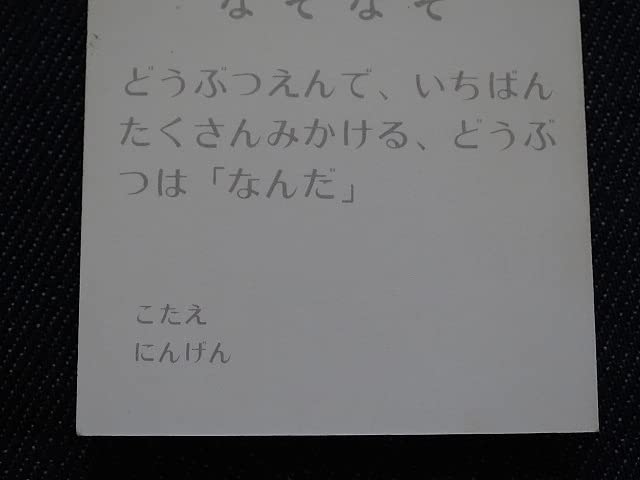 なぞなぞ
どうぶつえんで、いちばん
たくさんみかける、どうぶ
つは「なんだ」
こたえ
にんげん